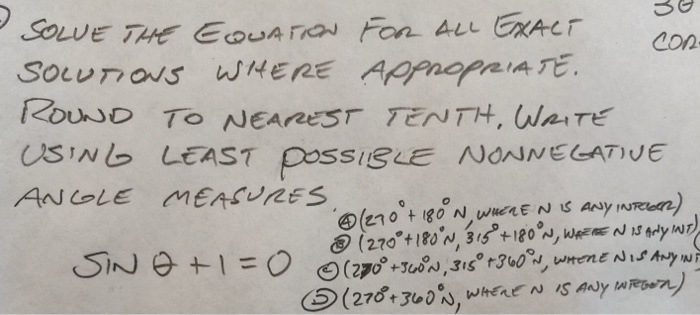 30
SOLVE THE EQUATION FOR ALL EXACT
COR
SOLUTIONS WHERE APPROPRIATE.
ROUND TO NEAREST TENTH. WRITE
USING LEAST POSSIBLE NONNEGATIVE
ANGLE MEASURES.
Ⓐ (270° + 180° N, WHERE N IS ANY INTEGER)
Ⓑ (270° + 180° N, 315° + 180° N, WHERE N IS ANY INT)
SIN θ + 1 = 0
Ⓒ (270° + 360° N, 315° + 360° N, WHERE N IS ANY INT
Ⓓ (270° + 360° N, WHERE N IS ANY INTEGER)